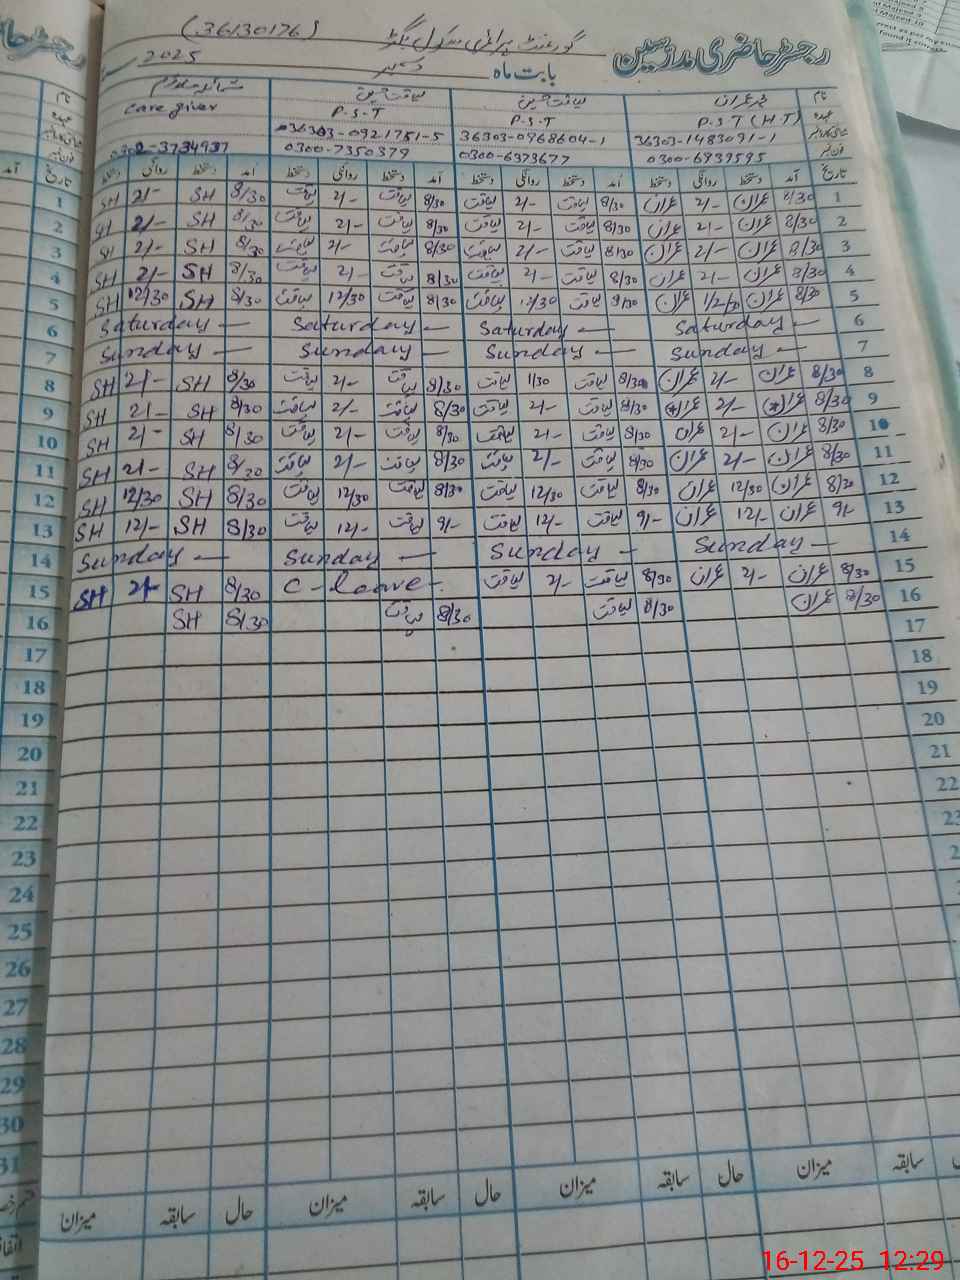 (36130176) گورنمنٹ پرائمری سکول
رجسٹر حاضری مدرسین بابت ماہ دسمبر 2025
نام محمد عمران لیاقت حسین لیاقت حسین
عہدہ P.S.T (H.T) P.S.T P.S.T Care giver
36303-1483091-1 36303-0968604-1 36303-0921751-5
0300-6939595 0300-6373677 0300-7350379 0302-3734937
تاریخ آمد دستخط روانگی دستخط آمد دستخط روانگی دستخط آمد دستخط روانگی دستخط آمد دستخط روانگی دستخط تاریخ
1 8/30 عمران 2/- عمران 8/30 لیاقت 2/- لیاقت 8/30 لیاقت 2/- لیاقت 8/30 SH 2/- SH 1
2 8/30 عمران 2/- عمران 8/30 لیاقت 2/- لیاقت 8/30 لیاقت 2/- لیاقت 8/30 SH 2/- SH 2
3 8/30 عمران 2/- عمران 8/30 لیاقت 2/- لیاقت 8/30 لیاقت 2/- لیاقت 8/30 SH 2/- SH 3
4 8/30 عمران 2/- عمران 8/30 لیاقت 2/- لیاقت 8/30 لیاقت 2/- لیاقت 8/30 SH 2/- SH 4
5 8/30 عمران 12/30 عمران 8/30 لیاقت 12/30 لیاقت 8/30 لیاقت 12/30 لیاقت 8/30 SH 12/30 SH 5
6 Saturday — Saturday — Saturday — Saturday — 6
7 Sunday — Sunday — Sunday — Sunday — 7
8 8/30 عمران 2/- عمران 8/30 لیاقت 1/30 لیاقت 8/30 لیاقت 2/- لیاقت 8/30 SH 2/- SH 8
9 8/30 عمران 2/- عمران 8/30 لیاقت 2/- لیاقت 8/30 لیاقت 2/- لیاقت 8/30 SH 2/- SH 9
10 8/30 عمران 2/- عمران 8/30 لیاقت 2/- لیاقت 8/30 لیاقت 2/- لیاقت 8/30 SH 2/- SH 10
11 8/30 عمران 2/- عمران 8/30 لیاقت 2/- لیاقت 8/30 لیاقت 2/- لیاقت 8/30 SH 2/- SH 11
12 8/30 عمران 12/30 عمران 8/30 لیاقت 12/30 لیاقت 8/30 لیاقت 12/30 لیاقت 8/30 SH 12/30 SH 12
13 9/- عمران 12/- عمران 9/- لیاقت 12/- لیاقت 9/- لیاقت 12/- لیاقت 8/30 SH 12/- SH 13
14 Sunday — Sunday — Sunday — Sunday — 14
15 8/30 عمران 2/- عمران 8/30 لیاقت 2/- لیاقت C-leave- 8/30 SH 2/- SH 15
16 8/30 عمران 8/30 لیاقت 8/30 لیاقت 8/30 SH 16
17 17
18 18
19 19
20 20
21 21
22 22
23 23
24
25
26
27
28
29
30
31
سابقہ میزان حال سابقہ میزان حال سابقہ میزان حال سابقہ میزان
16-12-25 12:29